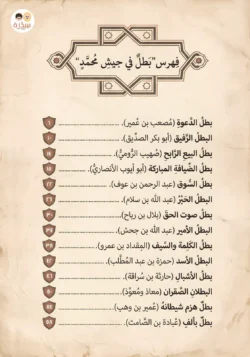 سِدْرَة
فِهرس"بَطلٌ في جيشِ مُحمَّدٍ"
بطلُ الدَّعوةِ (مُصعب بن عُمير)
البطلُ الرَّفيق (أبو بكر الصدِّيق)
بطلُ البيع الرَّابح (صُهيب الرُّوميّ)
بطلُ الضِّيافةِ المباركة (أبو أيوب الأنصاريّ)
بطلُ السُّوق (عبد الرحمن بن عوف)
البطلُ الحَبْرُ (عبد الله بن سلام)
بطلُ صوت الحقّ (بلال بن رباح)
البطلُ الأمير (عبد الله بن جحش)
بطلُ الكَلِمة والسَّيف (المِقداد بن عمرو)
البطلُ الأسد (حمزة بن عبد المُطَّلب)
بطلُ الأشبالِ (حارثة بن سُراقة)
البطلانِ الصَّقران (معاذ ومُعوِّذ)
بطلٌ هزم شيطانَهُ (عُمير بن وهب)
بطلٌ بألفٍ (عُبادة بن الصَّامت)